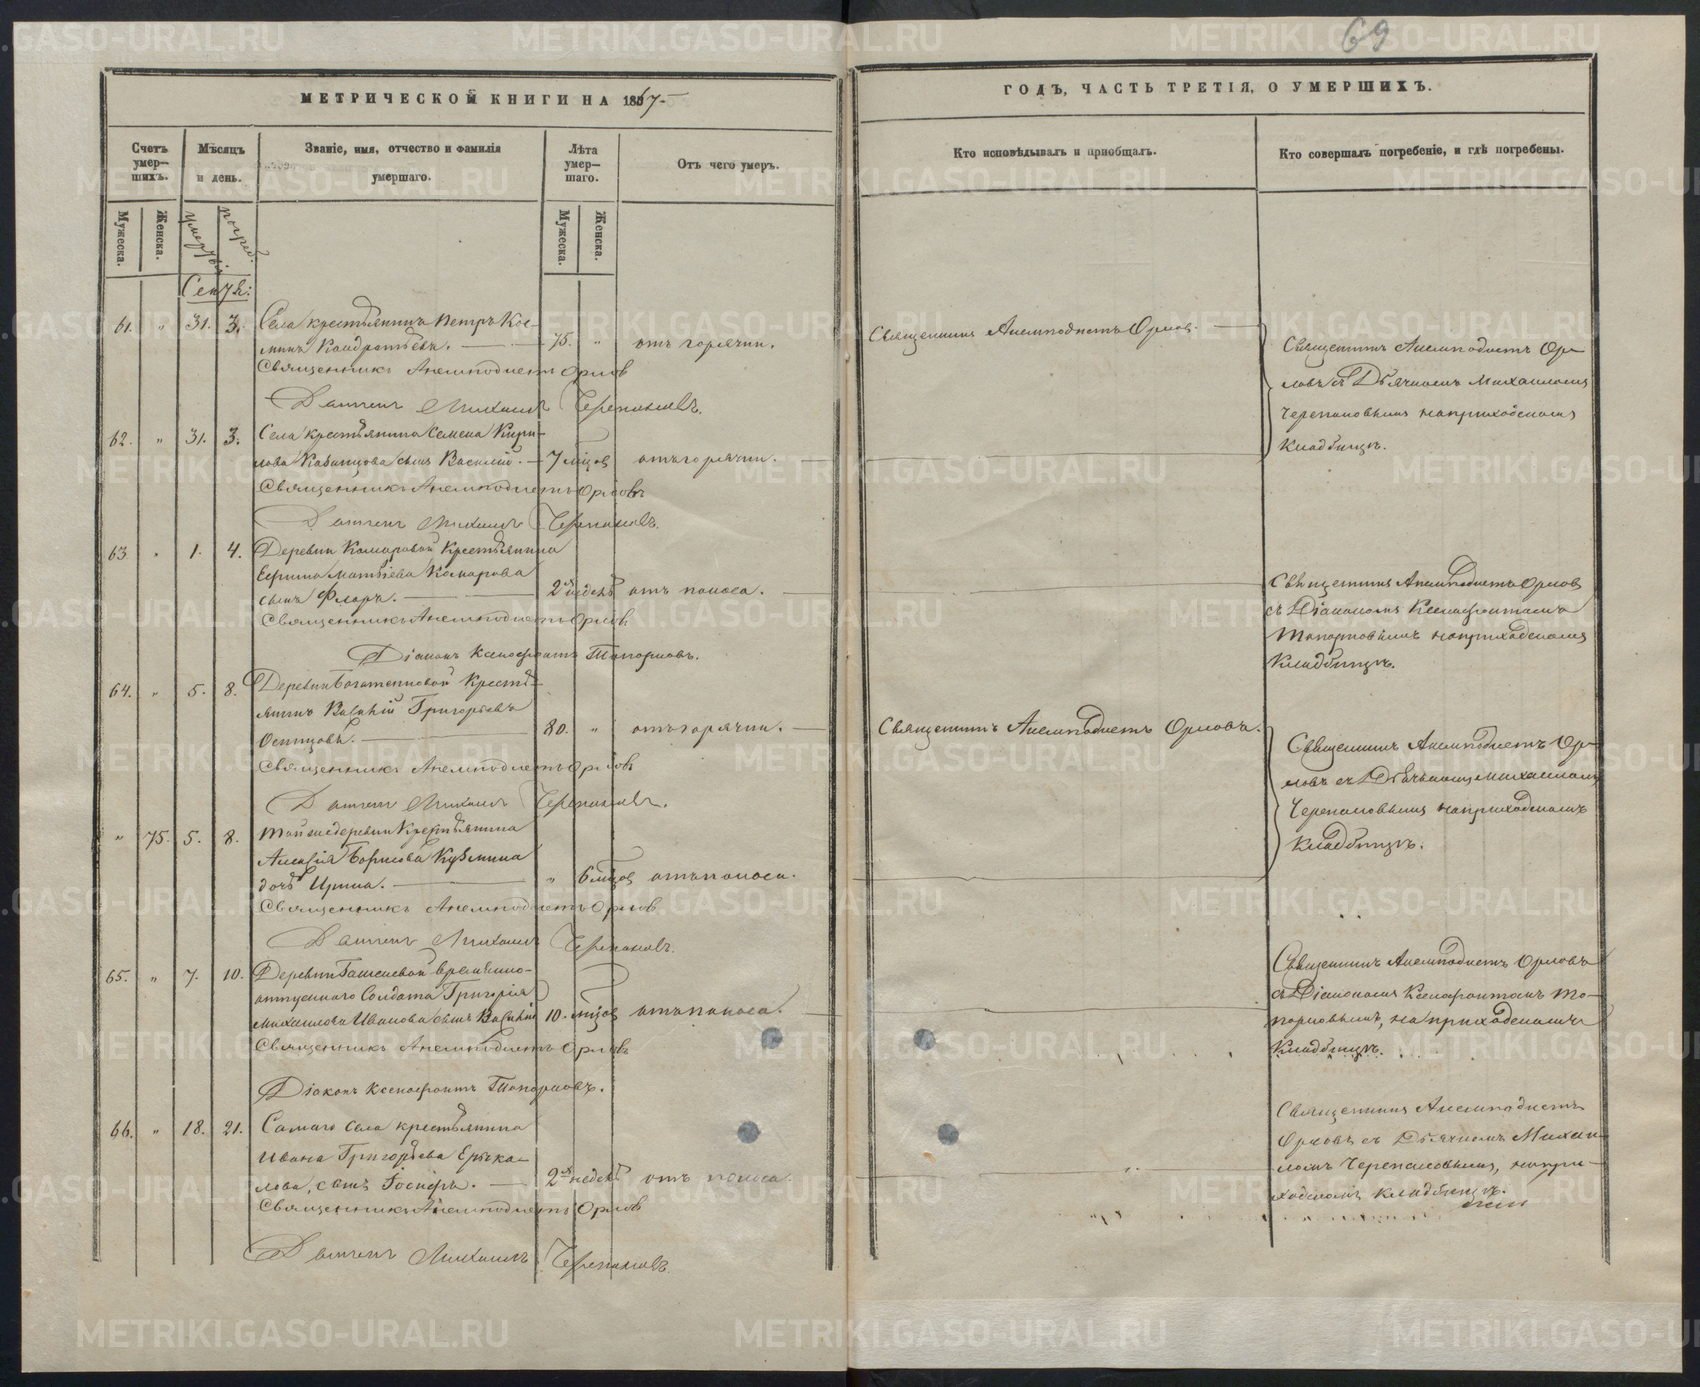 69
МЕТРИЧЕСКОЙ КНИГИ НА 1867
ГОДЪ, ЧАСТЬ ТРЕТІЯ, О УМЕРШИХЪ.
Счетъ умер-шихъ.
Мѣсяцъ и день.
Званіе, имя, отчество и фамилія умершаго.
Лѣта умер-шаго.
Отъ чего умеръ.
Кто исповѣдывалъ и пріобщалъ.
Кто совершалъ погребеніе, и гдѣ погребены.
Мужеска.
Женска.
Мужеска.
Женска.
61. " 31. 3. Села крестьянинъ Петръ Кос-
минъ Кондратьевъ. 75. " отъ горячки.
Священникъ Анемподистъ Орловъ.
Священникъ Анемподистъ Ор-
ловъ съ Дьячкомъ Михаиломъ
Черепановымъ на приходскомъ
Кладбищѣ.
Священникъ Анемподистъ Орлов
Дьячекъ Михаилъ Черепановъ.
62. " 31. 3. Села крестьянина Семена Кири-
лова сынъ Василій. 7 мѣсцов отъ горячки.
Священникъ Анемподистъ Орловъ
Дьячекъ Михаилъ Черепановъ.
63 " 1. 4. Деревни Комаровой Крестьянина
Ефима Матвѣева Комарова
сынъ Флоръ. 2 недѣль отъ поноса.
Священникъ Анемподистъ Орловъ
съ Діакономъ Ксенофонтомъ
Топорковымъ на приходскомъ
Кладбищѣ.
Священникъ Анемподистъ Орловъ
Діаконъ Ксенофонтъ Топорковъ.
64. " 5. 8. Деревни Крестья-
нинъ Василій Григорьевъ
Осинцовъ. 80. " отъ горячки.
Священникъ Анемподистъ Орловъ.
Священникъ Анемподистъ Ор-
ловъ съ Дьячкомъ Михаиломъ
Черепановымъ на приходскомъ
Кладбищѣ.
Священникъ Анемподистъ Орловъ
Дьячекъ Михаилъ Черепановъ.
" 75. 5. 8. Той же деревни Крестьянина
Алексія Борисова Кузмина
дочь Ирина. " 6 мѣсцов отъ поноса.
Священникъ Анемподистъ Орлов
Дьячекъ Михаилъ Черепановъ.
65. " 7. 10. Деревни временно-
отпускного Солдата Григорія
Михаилова Иванова сынъ Василій 10. мѣсцов отъ поноса.
Священникъ Анемподистъ Орловъ
съ Діакономъ Ксенофонтомъ То-
порковымъ, на приходскомъ
Кладбищѣ.
Священникъ Анемподистъ Орловъ
Діаконъ Ксенофонтъ Топорковъ.
66. " 18. 21. Самаго села крестьянина
Ивана Григорьева Ерыка-
лова, сынъ Іосифъ. 2 недѣль отъ поноса.
Священникъ Анемподистъ
Орловъ съ Дьячкомъ Михаи-
ломъ Черепановымъ, на при-
ходскомъ кладбищѣ.
Священникъ Анемподистъ Орлов
Дьячекъ Михаилъ Черепановъ.
METRIKI.GASO-URAL.RU